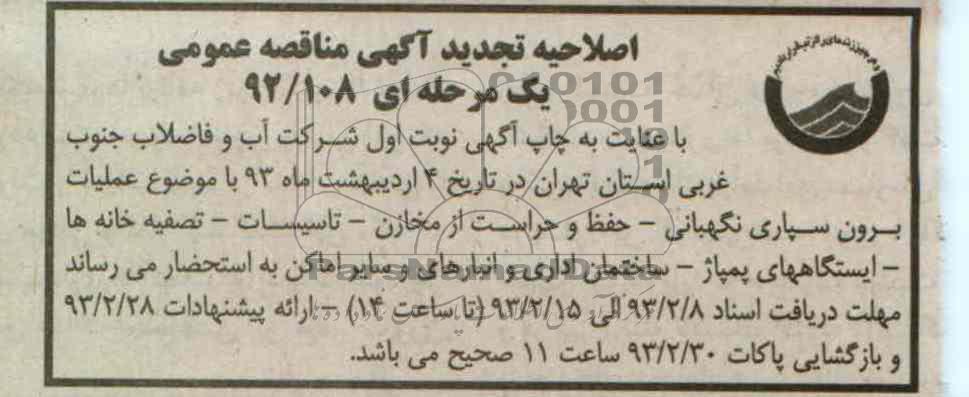 اصلاحیه تجدید آگهی مناقصه عمومی
یک مرحله ای ۹۲/۱۰۸
با عنایت به چاپ آگهی نوبت اول شرکت آب و فاضلاب جنوب
غربی استان تهران در تاریخ ۴ اردیبهشت ماه ۹۳ با موضوع عملیات
برون سپاری نگهبانی – حفظ و حراست از مخازن – تاسیسات – تصفیه خانه ها
– ایستگاههای پمپاژ – ساختمان اداری و انبارهای و سایر اماکن به استحضار می رساند
مهلت دریافت اسناد ۹۳/۲/۸ الی ۹۳/۲/۱۵ (تا ساعت ۱۴) – ارائه پیشنهادات ۹۳/۲/۲۸
و بازگشایی پاکات ۹۳/۲/۳۰ ساعت ۱۱ صحیح می باشد.